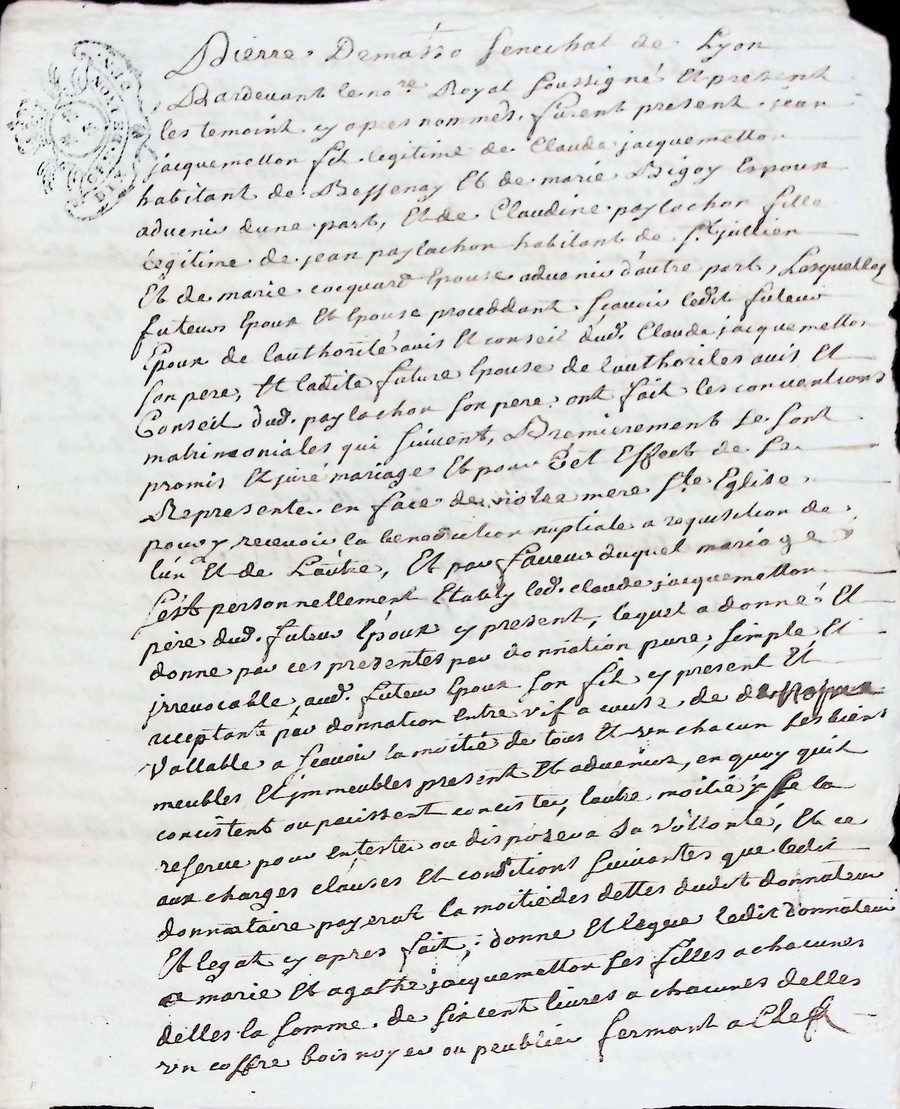 Pierre Demasso senechal de Lyon
Pardevant le no.re Royal soussigné Et present
les temoins cy apres nommés, furent present jean
jacquemetton fils legitime de Claude jacquemetton
habitant de Bessenay Et de marie Bigoy Epoux
advenir dune part, Et de Claudine paylachon fille
legitime de jean paylachon habitant de St jullien
Et de marie cocquard Epouse advenir d'autre part, Lesquelles
futeurs Epoux Et Epouse proceddant scavoir ledit futeur
Epoux de l'authorité avis Et conseil dud. Claude jacquemetton
son pere, Et ladite future Epouse de l'authorités avis Et
Conseil dud. paylachon son pere ont fait les conventions
matrimoniales qui suivent, Premierement se sont
promis Et juré mariage Et pour Cet Effect de se
Representer en face de notre mere Ste Eglise
pour y recevoir la benediction nuptiale a requisition de
l'un Et de L'autre, Et par faveur duquel mariage
s'est personnellement Etably led. claude jacquemetton
père dud. futeur Epoux cy present, lequel a donné Et
donne par ces presentes par donnation pure, simple Et
irrevocable aud. futeur Epoux son fils cy present Et
acceptant par donnation entre vif a cause de
Vallable a scavoir la moitié de tous Et un chacun ses biens
meubles Et immeubles present Et advenir, en quoy quil
concistent ou puissent concister, lautre moitié se la
reserve pour en tester ou disposer a sa vollonté, Et ce
aux charges clauses Et conditions suivantes que ledit
donnataire payerat la moitié des dettes dudit donnateur
Et legat cy apres fait, donne Et legue ledit donnateur
a marie Et agathe jacquemetton ses filles a chacunes
delles la somme de six cent livres a chacunes delles
un coffre bois noyer ou peublier fermant a Cleff